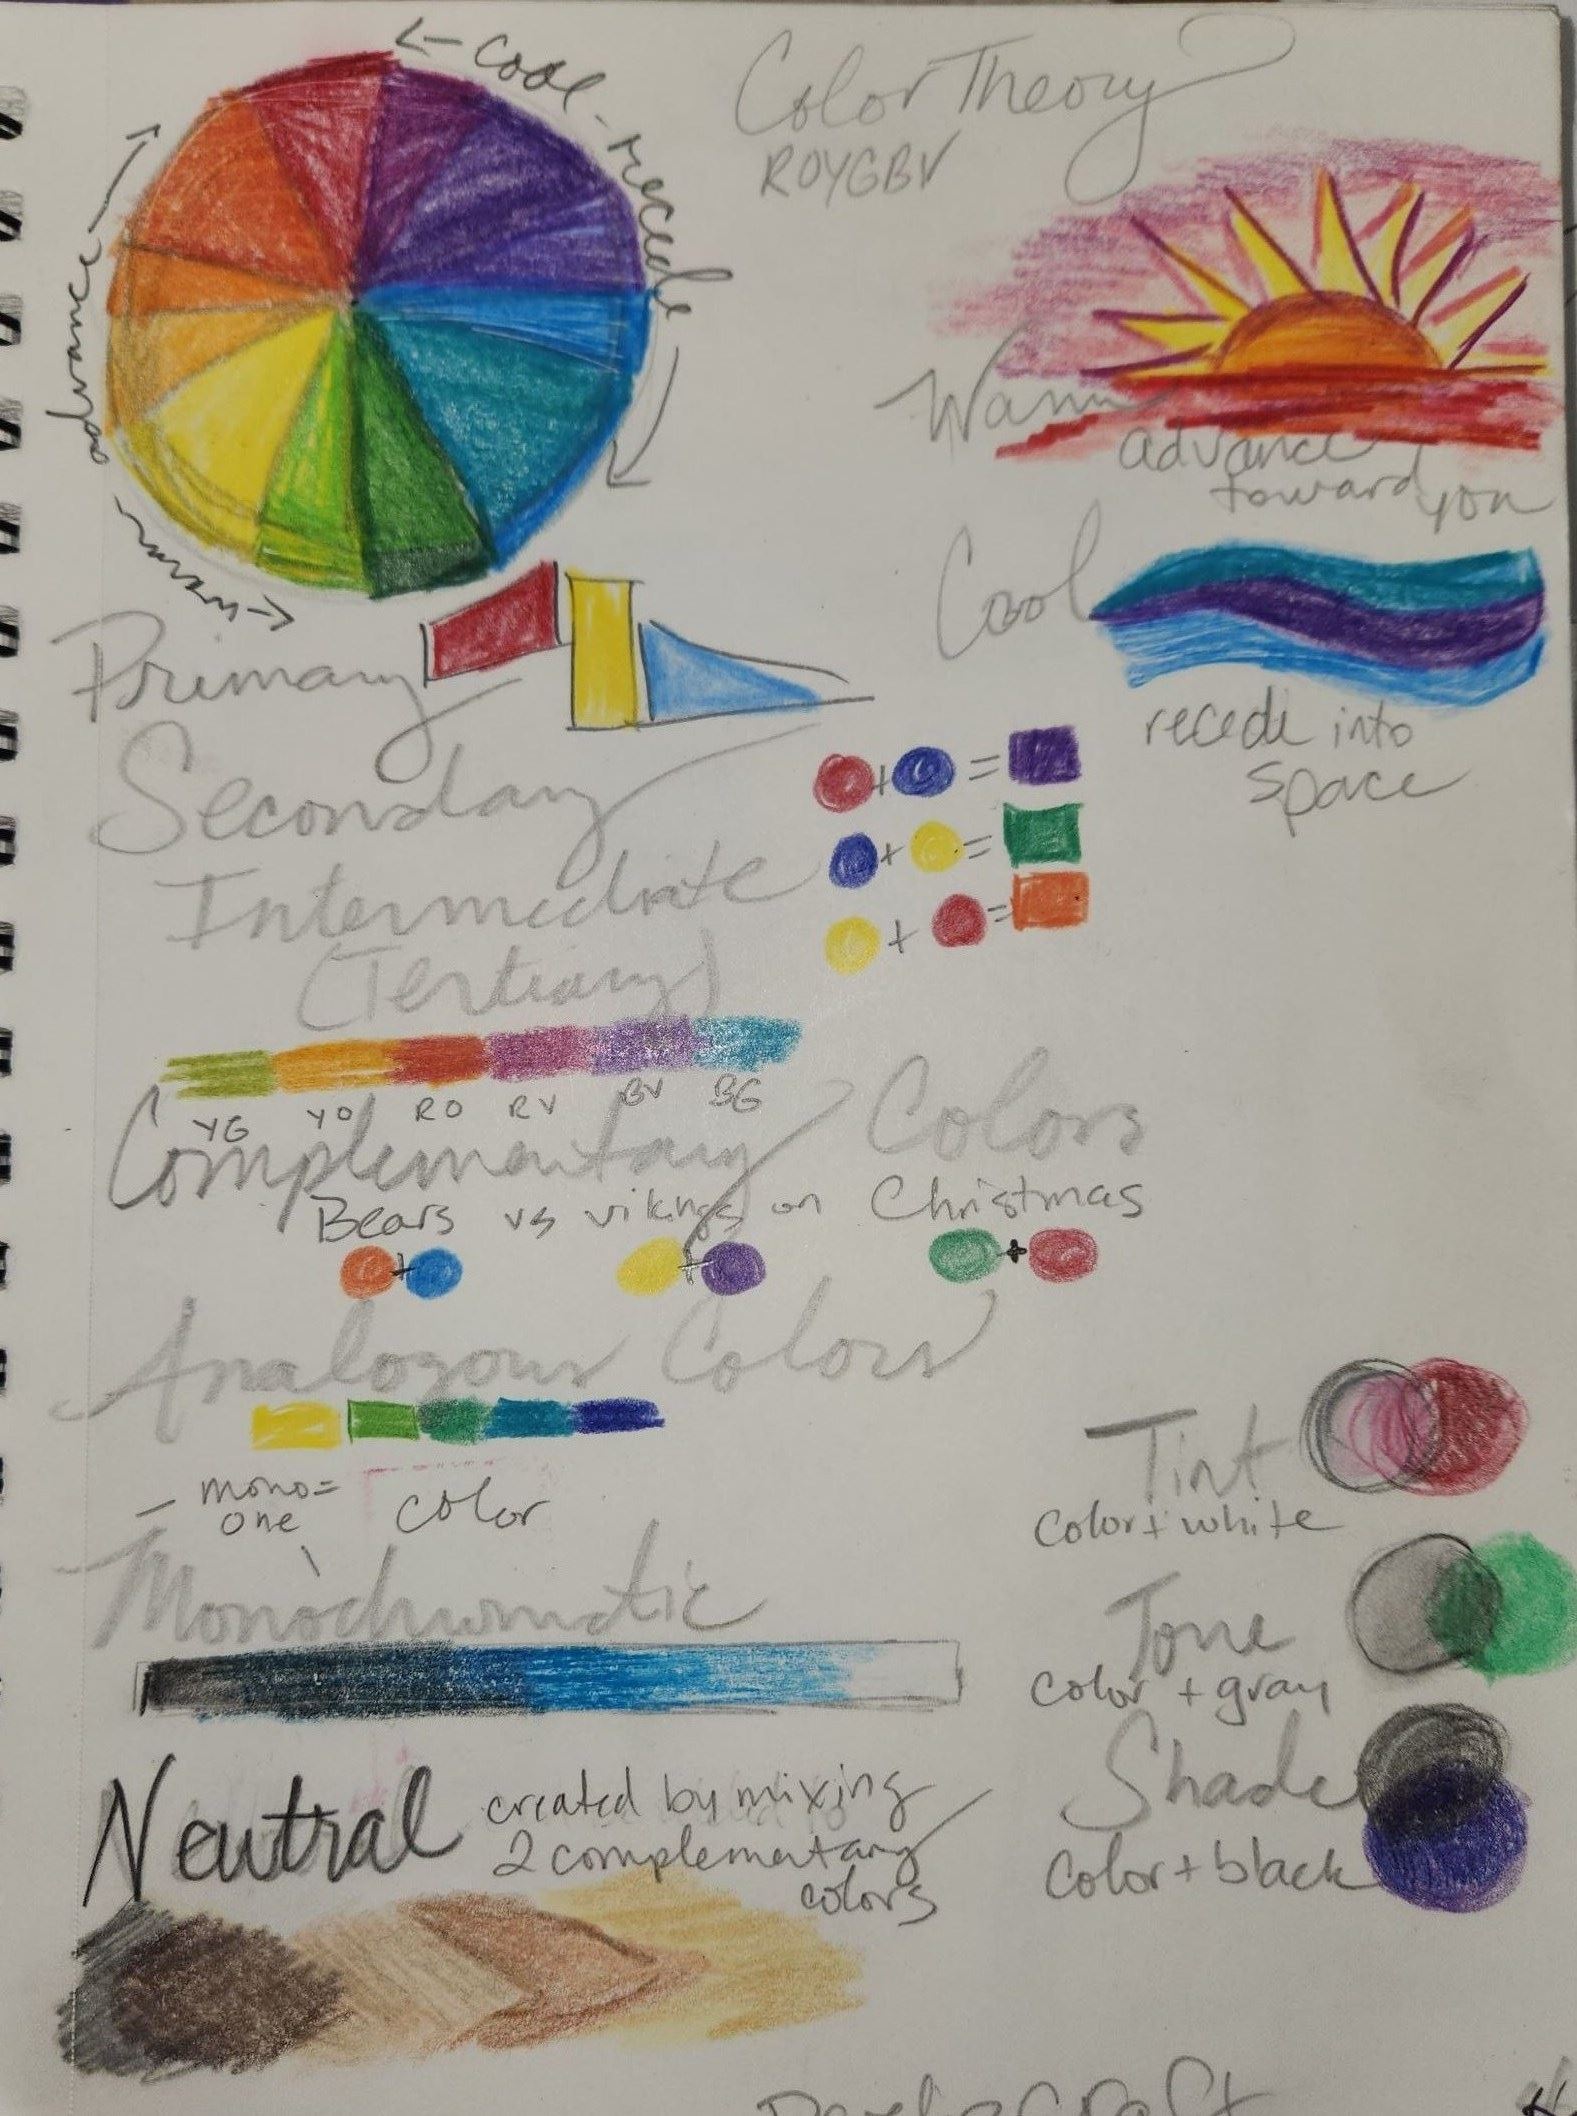 Color Theory
ROYGBV
← cool - recede
advance →
warm →
Warm
advance
toward you
Cool
recede into
space
Primary
Secondary
+ =
+ =
+ =
Intermediate
(Tertiary)
YG YO RO RV BV BG
Complementary Colors
Bears vs vikings on Christmas
+ + +
Analogous Colors
mono=
one
color
Monochromatic
Tint
Color + white
Tone
Color + gray
Shade
Color + black
Neutral
created by mixing
2 complementary
colors